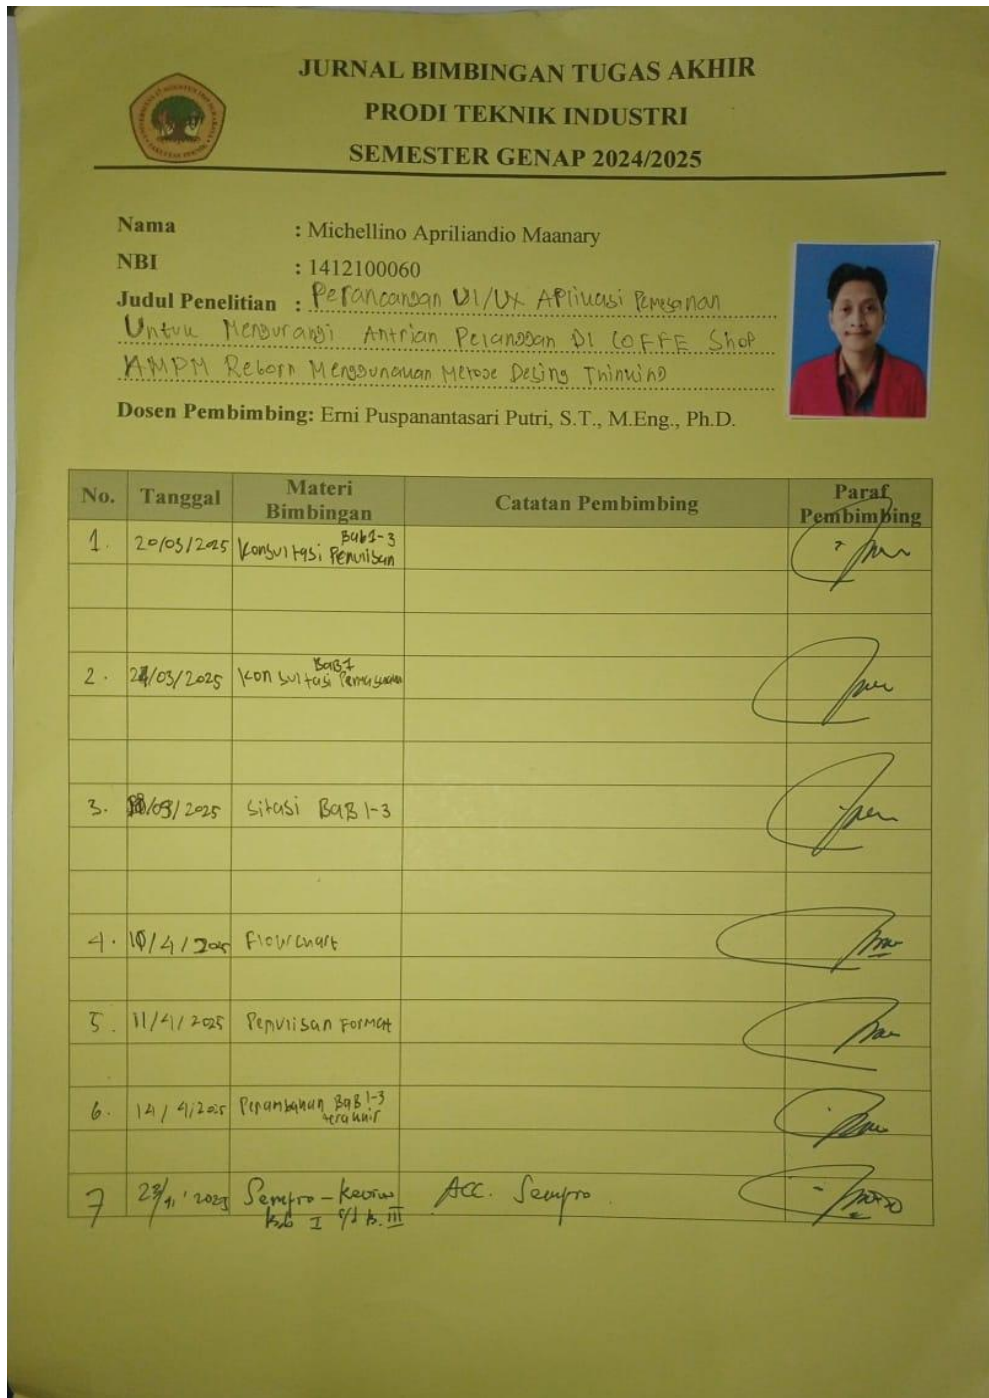 JURNAL BIMBINGAN TUGAS AKHIR
PRODI TEKNIK INDUSTRI
SEMESTER GENAP 2024/2025
Nama : Michellino Apriliandio Maanary
NBI : 1412100060
Judul Penelitian : Perancangan UI/UX Aplikasi Pemesanan
Untuk Mengurangi Antrian Pelanggan Di COFFE Shop
AMPM Reborn Menggunakan Metode Desing Thinking
Dosen Pembimbing: Erni Puspanantasari Putri, S.T., M.Eng., Ph.D.
No. Tanggal Materi Bimbingan Catatan Pembimbing Paraf Pembimbing
1. 20/03/2025 Konsultasi Penulisan Bab 1-3
2. /03/2025 Konsultasi BaB 1
3. /2025 Sitasi BaB 1-3
4. /4/2025 Flowchart
5. 11/4/2025 Penulisan Format
6. 14/4/2025 BaB 1-3 terakhir
7 Sempro - I s/d III ACC. Sempro